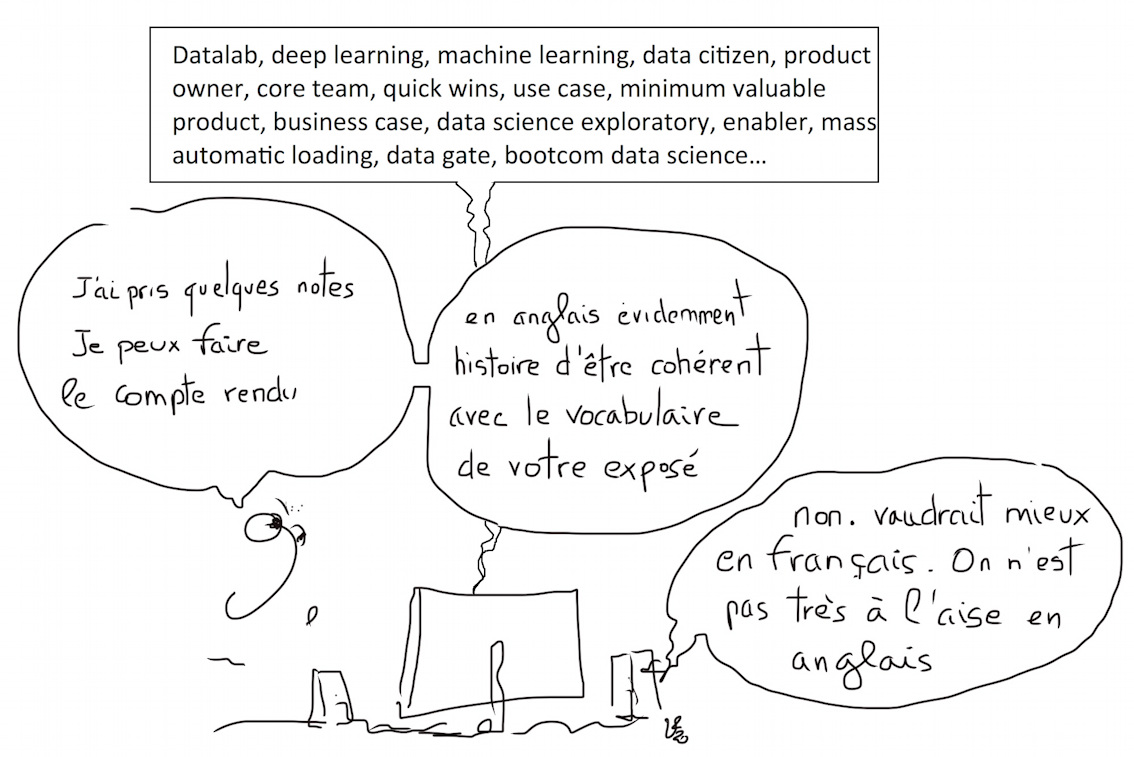 Datalab, deep learning, machine learning, data citizen, product
owner, core team, quick wins, use case, minimum valuable
product, business case, data science exploratory, enabler, mass
automatic loading, data gate, bootcom data science...
J'ai pris quelques notes
Je peux faire
le compte rendu
en anglais évidemment
histoire d'être cohérent
avec le vocabulaire
de votre exposé
non. vaudrait mieux
en français. On n'est
pas très à l'aise en
anglais